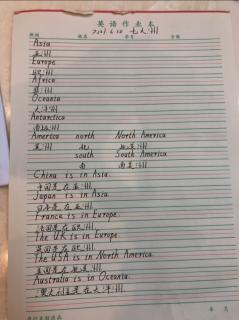 英语作业本
班级 姓名 学号 分数
2021.6.10 七大洲
Asia
亚洲
Europe
欧洲
Africa
非洲
Oceania
大洋洲
Antarctica
南极洲
America north North America
美洲 北 北美洲
south South America
南 南美洲
China is in Asia.
中国是在亚洲.
Japan is in Asia.
日本是在亚洲.
France is in Europe.
法国是在欧洲.
The UK is in Europe.
英国是在欧洲.
The USA is in North America.
美国是在北美洲.
Australia is in Oceania.
澳大利亚是在大洋洲.